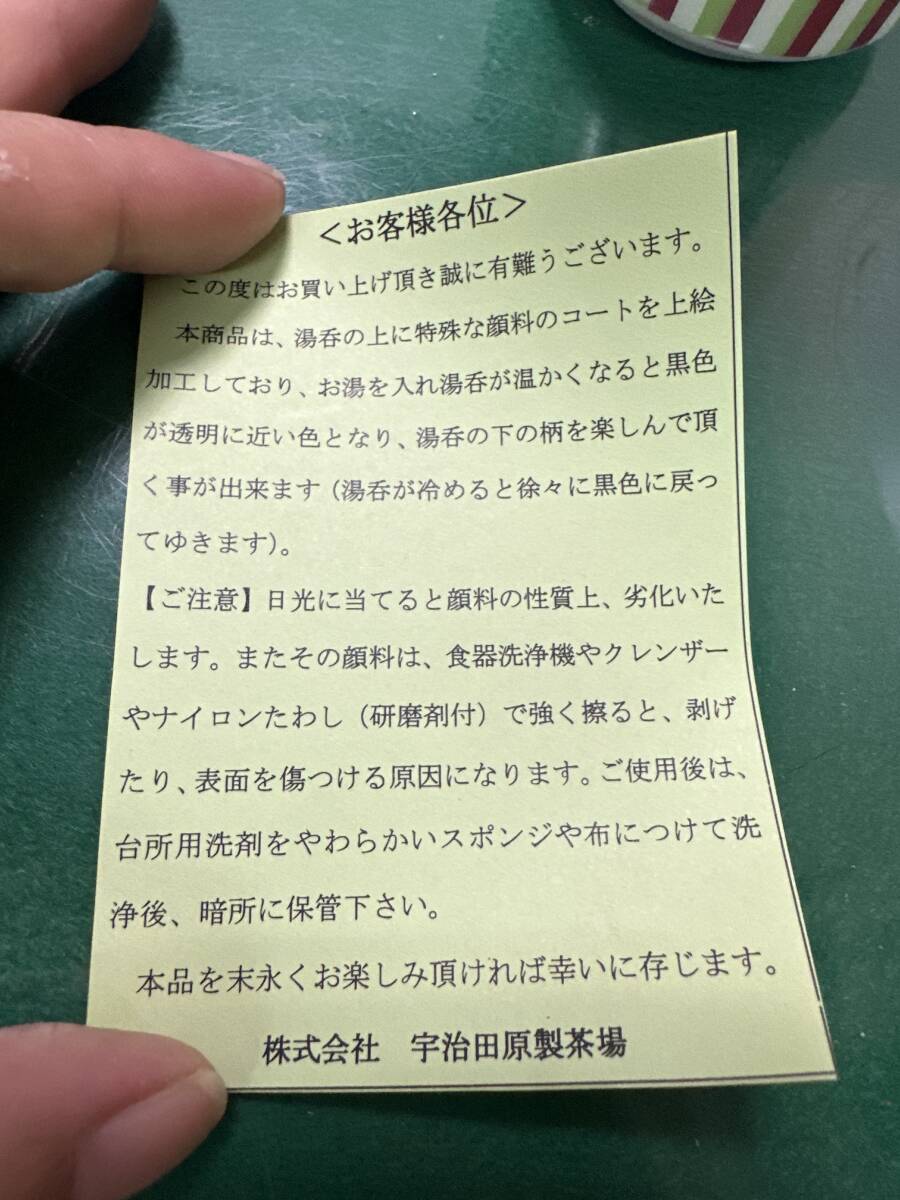 ＜お客様各位＞
この度はお買い上げ頂き誠に有難うございます。
本商品は、湯呑の上に特殊な顔料のコートを上絵
加工しており、お湯を入れ湯呑が温かくなると黒色
が透明に近い色となり、湯呑の下の柄を楽しんで頂
く事が出来ます（湯呑が冷めると徐々に黒色に戻っ
てゆきます）。
【ご注意】日光に当てると顔料の性質上、劣化いた
します。またその顔料は、食器洗浄機やクレンザー
やナイロンたわし（研磨剤付）で強く擦ると、剥げ
たり、表面を傷つける原因になります。ご使用後は、
台所用洗剤をやわらかいスポンジや布につけて洗
浄後、暗所に保管下さい。
本品を末永くお楽しみ頂ければ幸いに存じます。
株式会社　宇治田原製茶場